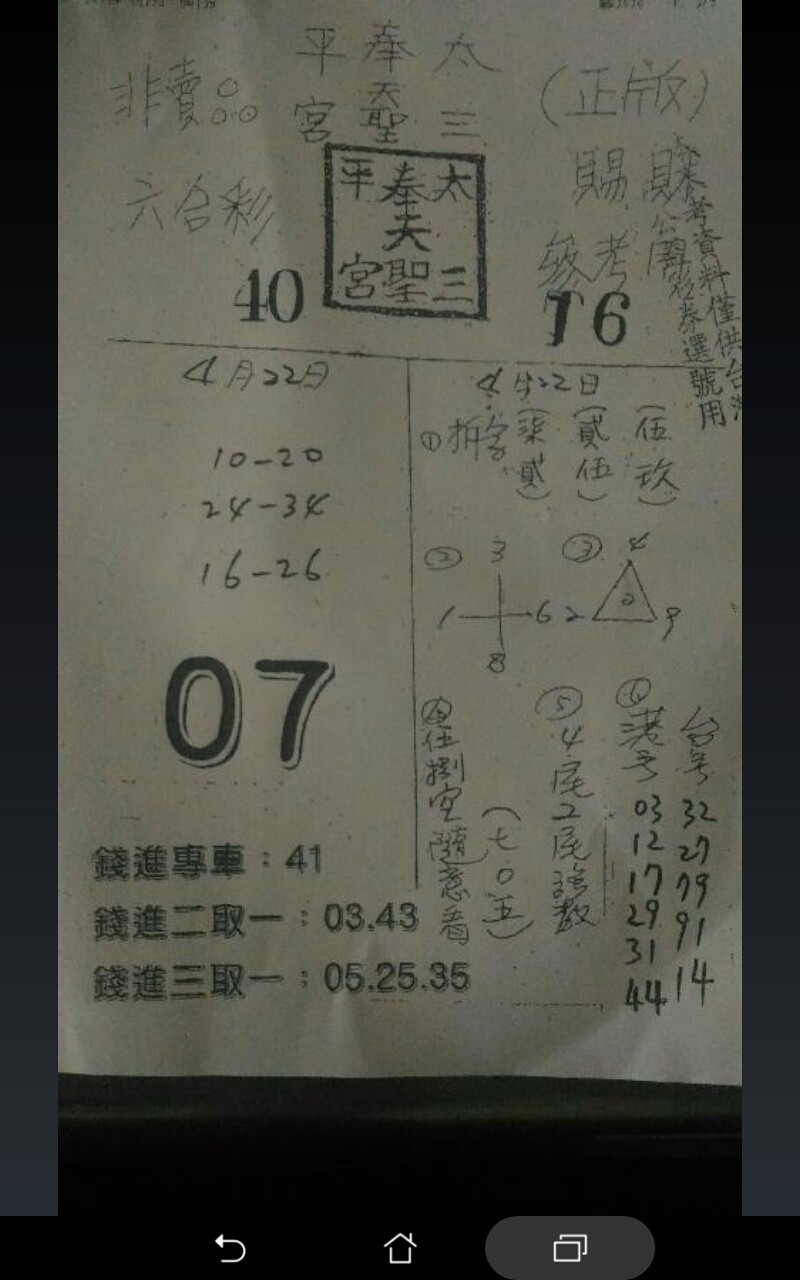 太 奉 平
三 天聖 宮
非賣品
(正版)
六合彩
太 奉 平
天
三 聖 宮
賜 財
參考
考資料僅供台
公益彩券選號用
40
16
4月22日
10-20
24-34
16-26
07
錢進專車:41
錢進二取一:03.43
錢進三取一:05.25.35
4月22日
①拆字(柒貳)(貳伍)(伍玖)
② 3
1 6
8
③ 4
2
2 9
④伍捌空隨意看
(七0五)
⑤4尾2尾強數
⑥港号 台号
03 32
12 27
17 79
29 91
31 14
44